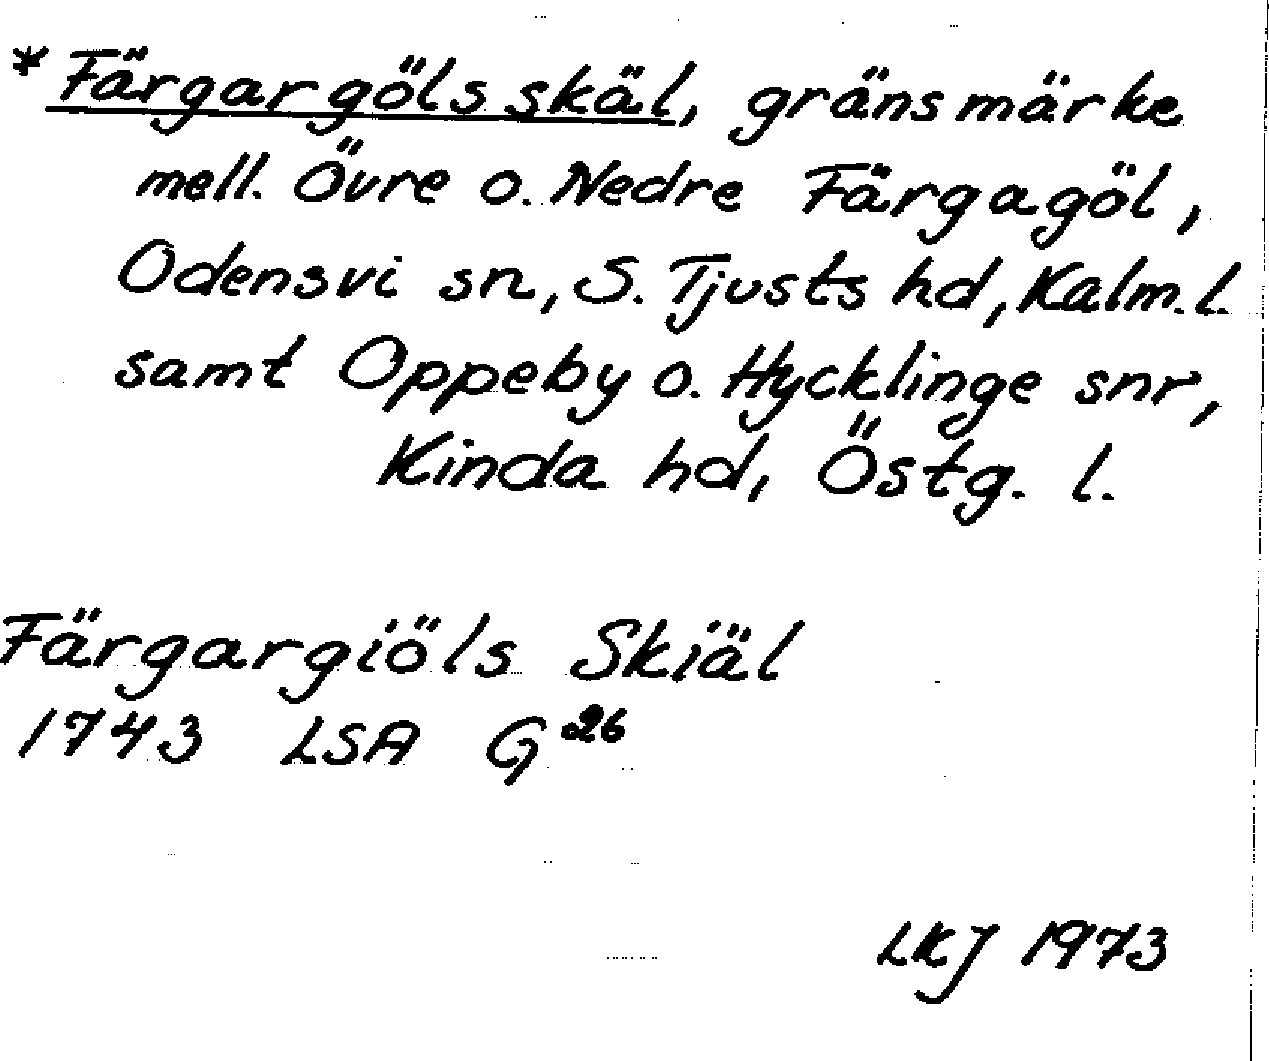 * Färgargöls skäl, gränsmärke
mell. Övre o. Nedre Färgagöl,
Odensvi sn, S. Tjusts hd, Kalm. l.
samt Oppeby o. Hycklinge snr,
Kinda hd, Östg. l.
Färgargiöls Skiäl
1743 LSA G 26
LKJ 1973